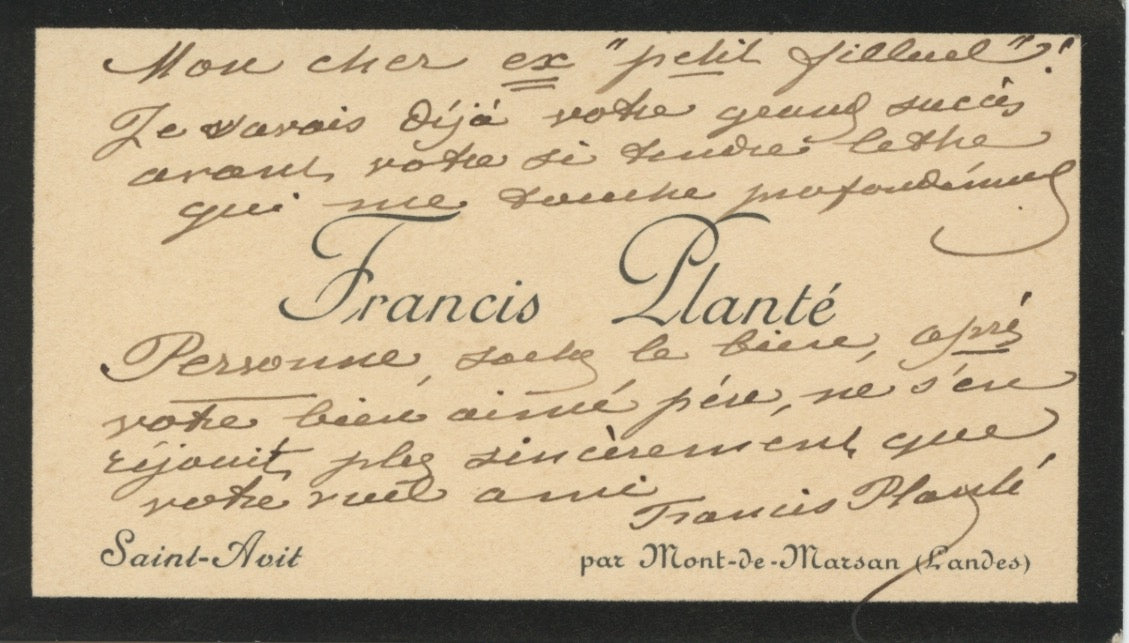 Mon cher ex "petit filleul"?!
Je savais déjà votre grand succès
avant votre si tendre lettre
qui me touche profondément
Francis Planté
Personne, sachez le bien, après
votre bien aimé père, ne s'en
réjouit plus sincèrement que
votre vieil ami
Francis Planté
Saint-Avit
par Mont-de-Marsan (Landes)